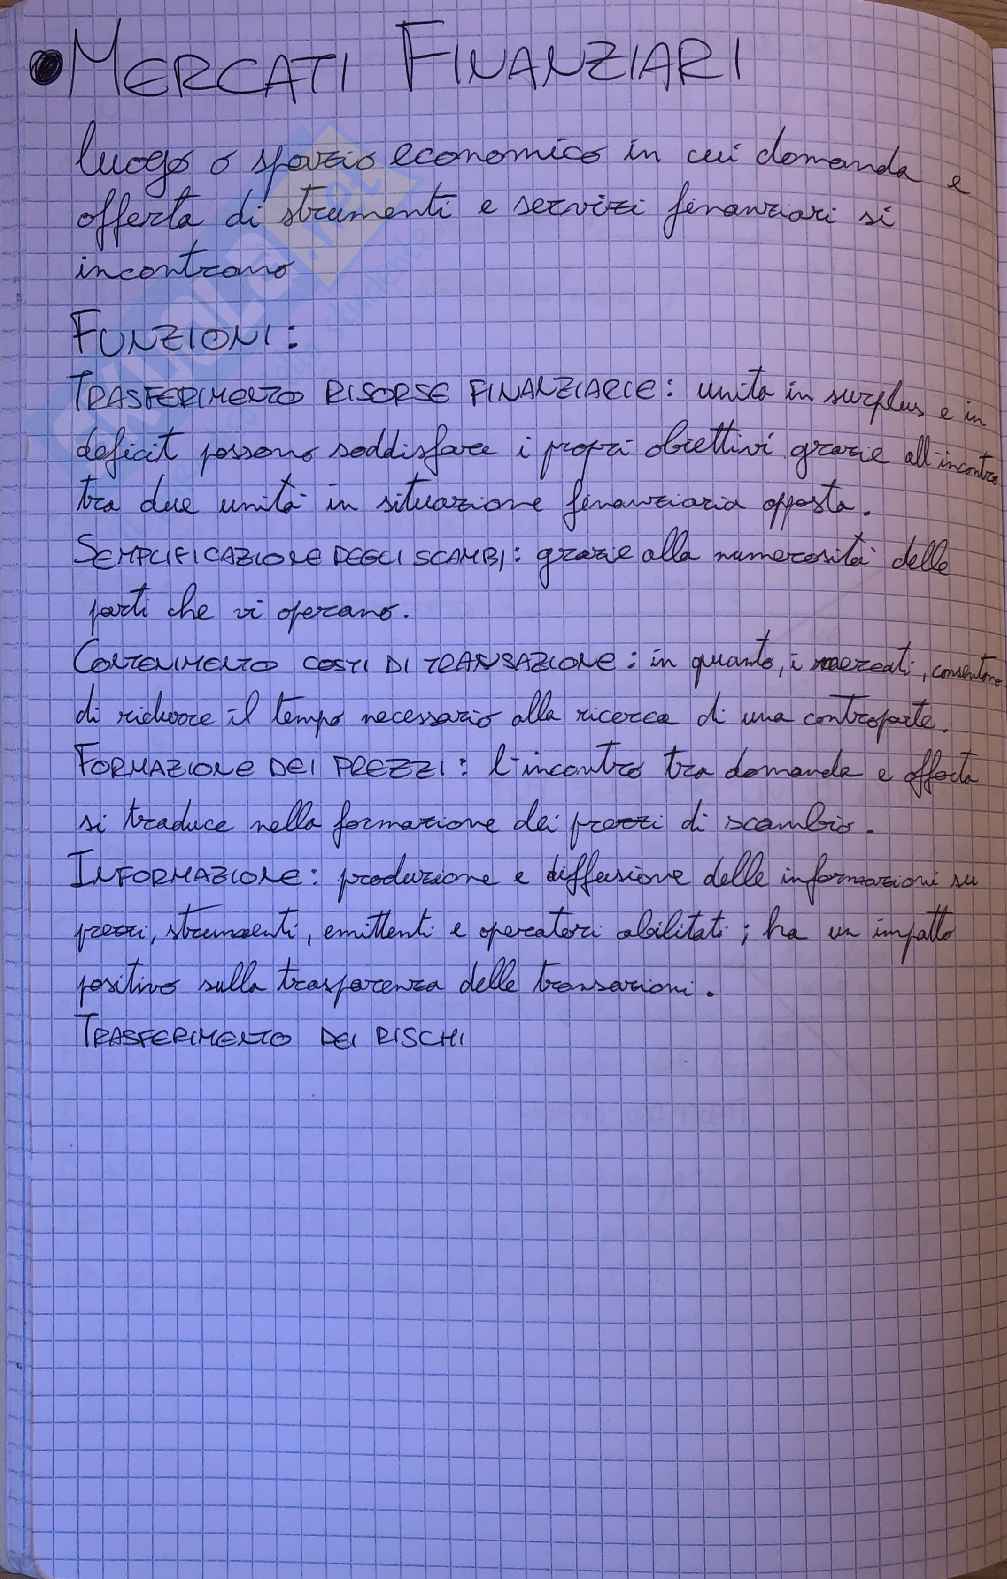 • MERCATI FINANZIARI
luogo o spazio economico in cui domanda e
offerta di strumenti e servizi finanziari si
incontrano
FUNZIONI:
TRASFERIMENTO RISORSE FINANZIARIE: unità in surplus e in
deficit possono soddisfare i propri obiettivi grazie all'incontro
tra due unità in situazione finanziaria opposta.
SEMPLIFICAZIONE DEGLI SCAMBI: grazie alla numerosità delle
parti che vi operano.
CONTENIMENTO COSTI DI TRANSAZIONE: in quanto, i mercati, consentono
di ridurre il tempo necessario alla ricerca di una controparte.
FORMAZIONE DEI PREZZI: l'incontro tra domanda e offerta
si traduce nella formazione dei prezzi di scambio.
INFORMAZIONE: produzione e diffusione delle informazioni su
prezzi, strumenti, emittenti e operatori abilitati; ha un impatto
positivo sulla trasparenza delle transazioni.
TRASFERIMENTO DEI RISCHI